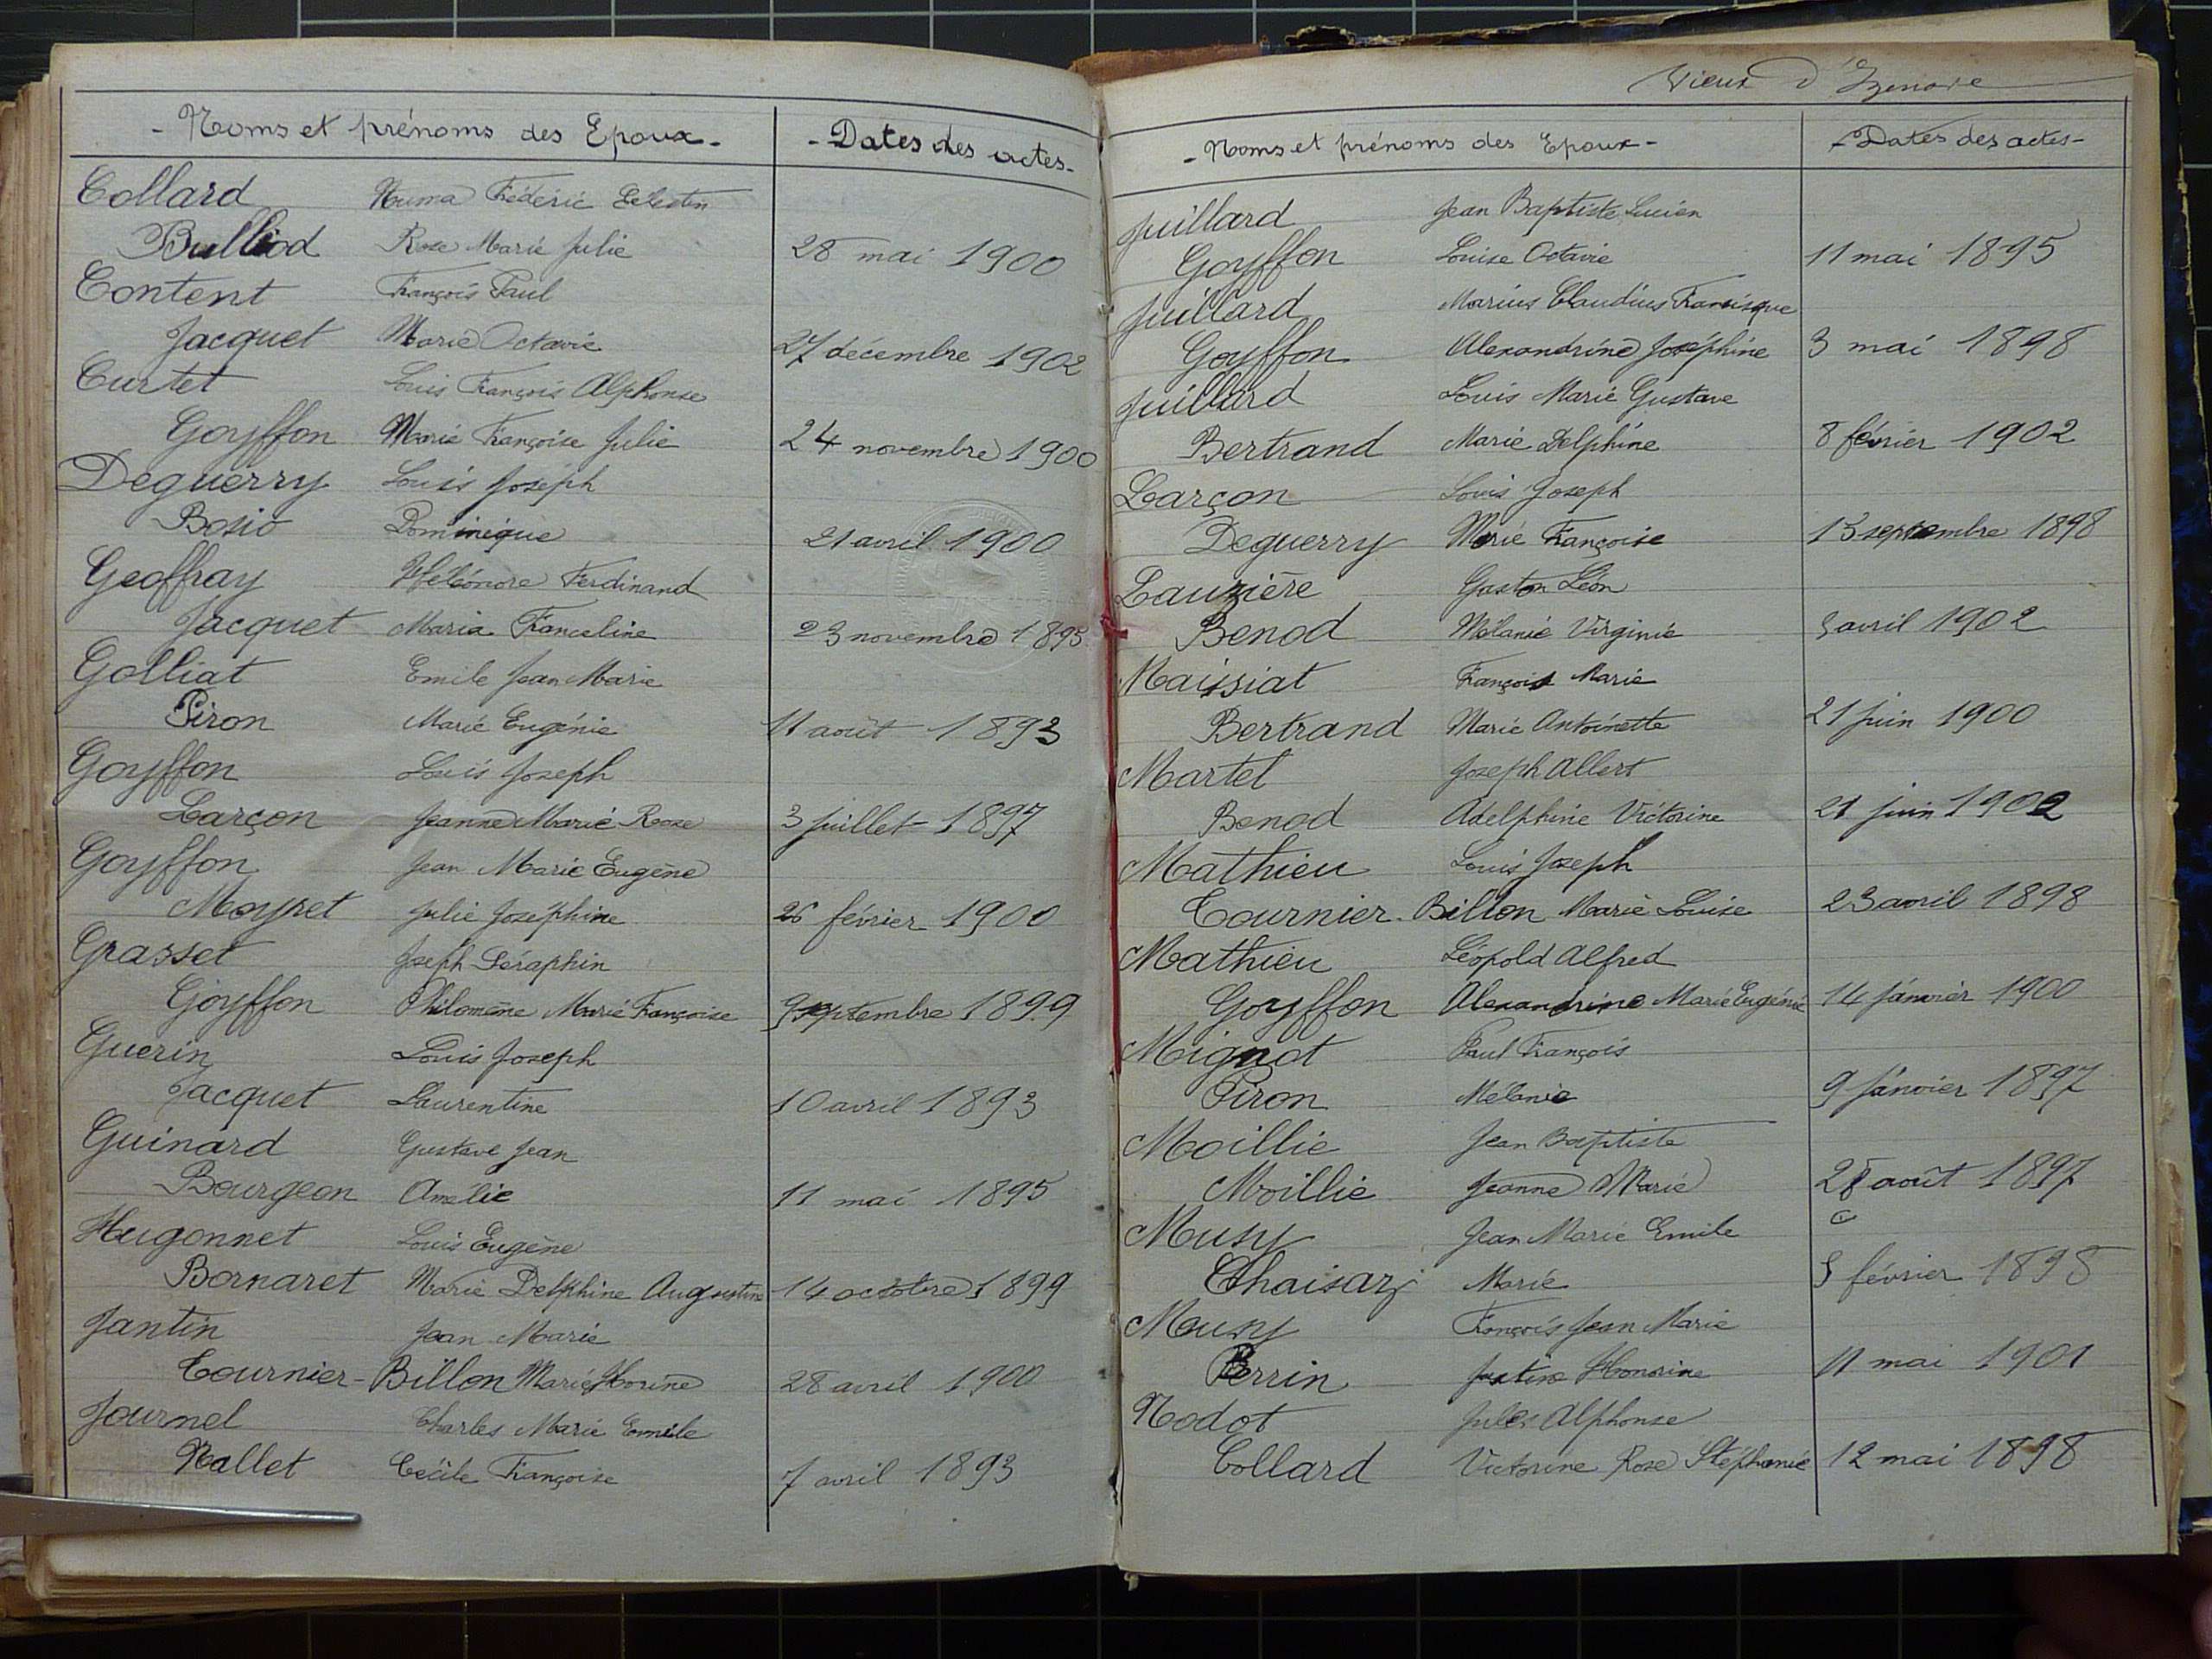 - Noms et prénoms des Epoux - - Dates des actes -
Collard Numa Frédéric Célestin
Bulliod Rose Marie Julie 28 mai 1900
Content François Paul
Jacquet Marie Octavie 27 décembre 1902
Curtet Louis François Alphonse
Goyffon Marie Françoise Julie 24 novembre 1900
Deguerry Louis Joseph
Bosio Dominique 21 avril 1900
Geoffray Héléonore Ferdinand
Jacquet Maria Franceline 23 novembre 1895
Golliat Emile Jean Marie
Piron Marie Eugénie 11 août 1893
Goyffon Louis Joseph
Larçon Jeanne Marie Rose 3 juillet 1897
Goyffon Jean Marie Eugène
Moyret Julie Joséphine 26 février 1900
Grasset Joseph Séraphin
Goyffon Philomène Marie Françoise 9 septembre 1899
Guerin Louis Joseph
Jacquet Laurentine 10 avril 1893
Guinard Gustave Jean
Bourgeon Amélie 11 mai 1895
Hugonnet Louis Eugène
Bornaret Marie Delphine Augustine 14 octobre 1899
Jantin Jean Marie
Tournier-Billon Marie 28 avril 1900
Journel Charles Marie Emile
Nallet Cécile Françoise 7 avril 1893
Vieux d'Izenave
- Noms et prénoms des Epoux - - Dates des actes -
Juillard Jean Baptiste Lucien
Goyffon Louise Octavie 11 mai 1895
Juillard Marius Claudius Francisque
Goyffon Alexandrine Joséphine 3 mai 1898
Juillard Louis Marie Gustave
Bertrand Marie Delphine 8 février 1902
Larçon Louis Joseph
Deguerry Marie Françoise septembre 1898
Lauzière Gaston Léon
Benod Mélanie Virginie 5 avril 1902
Maissiat François Marie
Bertrand Marie Antoinette 21 juin 1900
Martel Joseph Albert
Benod Adelphine Victorine 21 juin 1902
Mathieu Louis Joseph
Tournier-Billon Marie Louise 23 avril 1898
Mathieu Léopold Alfred
Goyffon Alexandrine Marie Eugénie 14 janvier 1900
Mignot Paul François
Piron Mélanie 9 janvier 1897
Moillie Jean Baptiste
Moillie Jeanne Marie 28 août 1897
Musy Jean Marie Emile
Chaisaz Marie février
Musy François Jean Marie
Perrin Justine Honorine 11 mai 1901
Nodot Jules Alphonse
Collard Victorine Rose Stéphanie 12 mai 1898